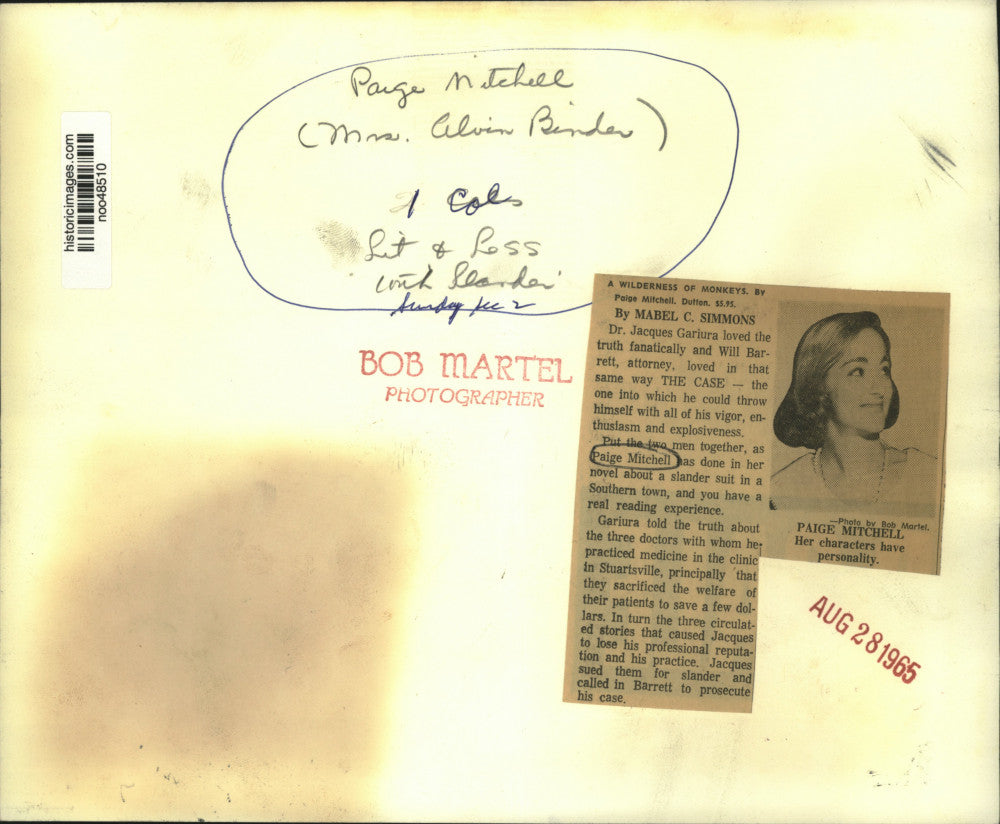 Paige Mitchell
(Mrs. Alvin Binder)
1 Cols
Lit & Less
with Slander
Sunday
historicimages.com
noo48510
BOB MARTEL
PHOTOGRAPHER
A WILDERNESS OF MONKEYS. By
Paige Mitchell. Dutton. $5.95.
By MABEL C. SIMMONS
Dr. Jacques Gariura loved the
truth fanatically and Will Bar-
rett, attorney, loved in that
same way THE CASE — the
one into which he could throw
himself with all of his vigor, en-
thusiasm and explosiveness.
Put the two men together, as
Paige Mitchell has done in her
novel about a slander suit in a
Southern town, and you have a
real reading experience.
Gariura told the truth about
the three doctors with whom he
practiced medicine in the clinic
in Stuartsville, principally that
they sacrificed the welfare of
their patients to save a few dol-
lars. In turn the three circulat-
ed stories that caused Jacques
to lose his professional reputa-
tion and his practice. Jacques
sued them for slander and
called in Barrett to prosecute
his case.
—Photo by Bob Martel.
PAIGE MITCHELL
Her characters have
personality.
AUG 28 1965